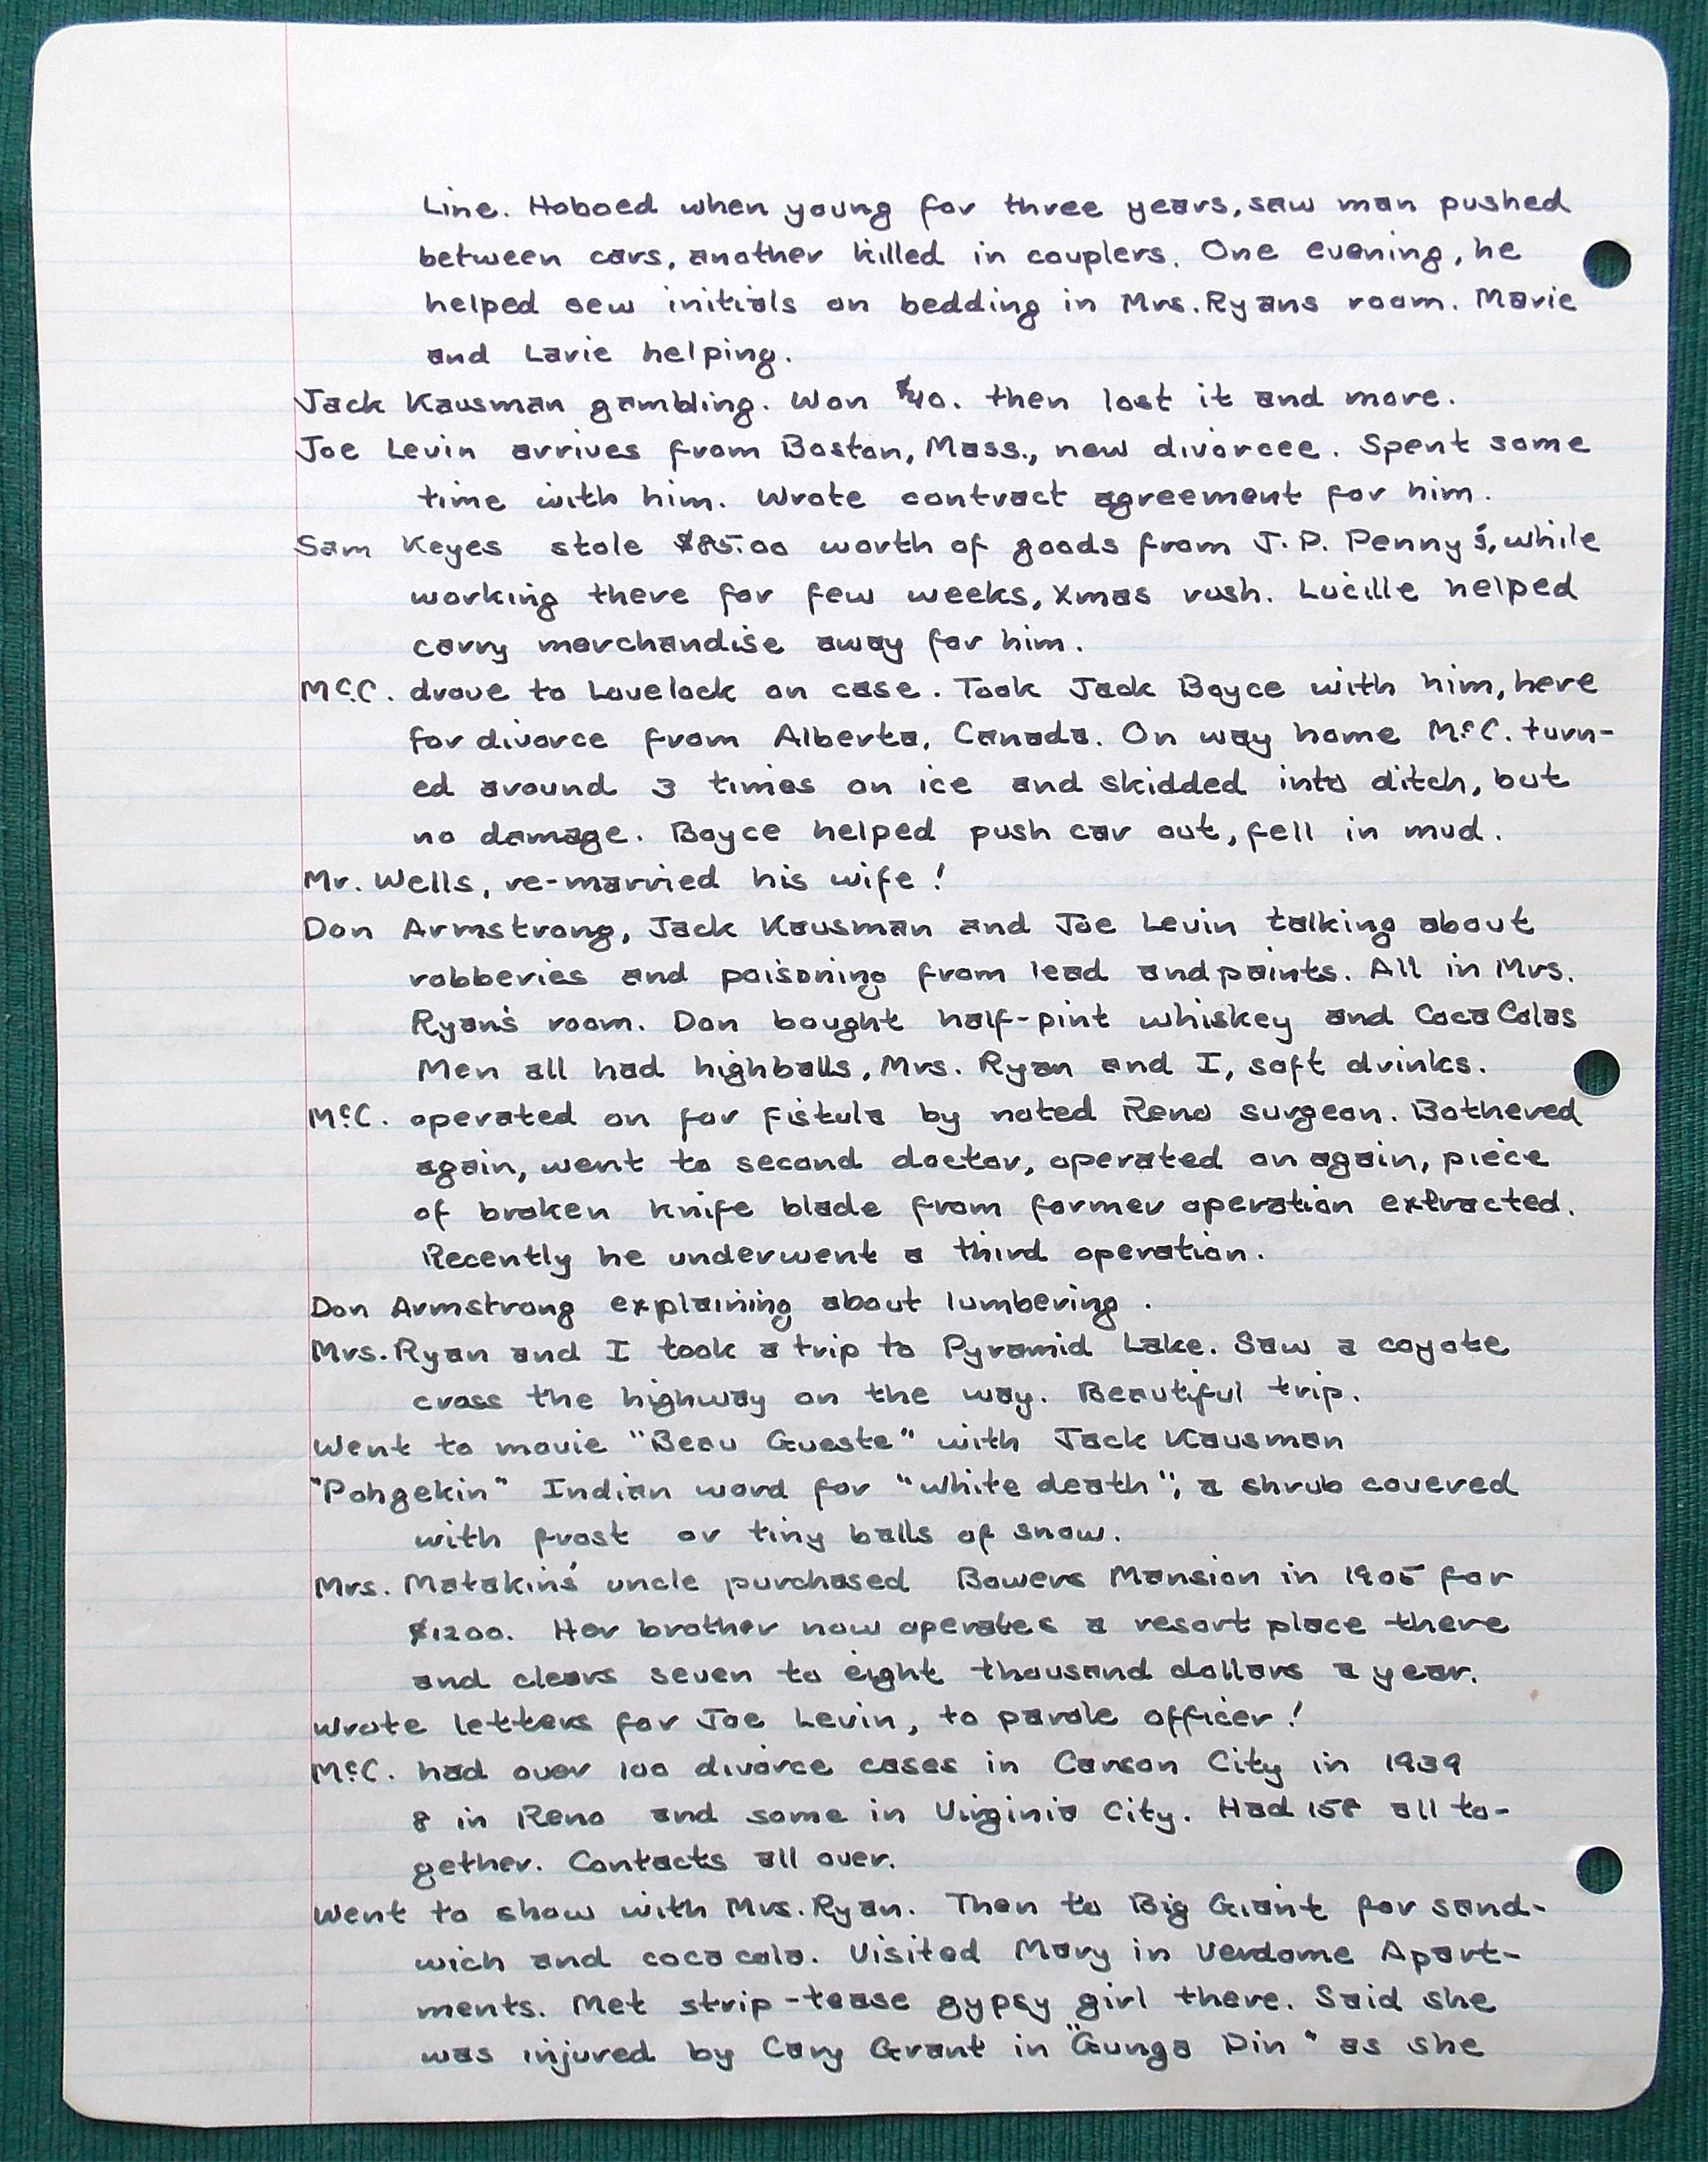 Line. Hoboed when young for three years, saw man pushed
between cars, another killed in couplers. One evening, he
helped sew initials on bedding in Mrs. Ryans room. Marie
and Lavie helping.
Jack Kausman gambling. Won $40. then lost it and more.
Joe Levin arrives from Boston, Mass., new divorcee. Spent some
time with him. Wrote contract agreement for him.
Sam Keyes stole $85.00 worth of goods from J.P. Penny's, while
working there for few weeks, Xmas rush. Lucille helped
carry merchandise away for him.
McC. drove to Lovelock on case. Took Jack Boyce with him, here
for divorce from Alberta, Canada. On way home McC. turn-
ed around 3 times on ice and skidded into ditch, but
no damage. Boyce helped push car out, fell in mud.
Mr. Wells, re-married his wife!
Don Armstrong, Jack Kausman and Joe Levin talking about
robberies and poisoning from lead and paints. All in Mrs.
Ryan's room. Don bought half-pint whiskey and Coca Colas
Men all had highballs, Mrs. Ryan and I, soft drinks.
McC. operated on for fistula by noted Reno surgeon. Bothered
again, went to second doctor, operated on again, piece
of broken knife blade from former operation extracted.
Recently he underwent a third operation.
Don Armstrong explaining about lumbering.
Mrs. Ryan and I took a trip to Pyramid Lake. Saw a coyote
cross the highway on the way. Beautiful trip.
Went to movie "Beau Gueste" with Jack Kausman
"Pohgekin" Indian word for "white death", a shrub covered
with frost or tiny balls of snow.
Mrs. Matakins' uncle purchased Bowers Mansion in 1905 for
$1200. Her brother now operates a resort place there
and clears seven to eight thousand dollars a year.
Wrote letters for Joe Levin, to parole officer!
McC. had over 100 divorce cases in Carson City in 1939
8 in Reno and some in Virginia City. Had 158 all to-
gether. Contacts all over.
Went to show with Mrs. Ryan. Then to Big Giant for sand-
wich and coca cola. Visited Mary in Vendome Apart-
ments. Met strip-tease gypsy girl there. Said she
was injured by Cary Grant in "Gunga Din" as she